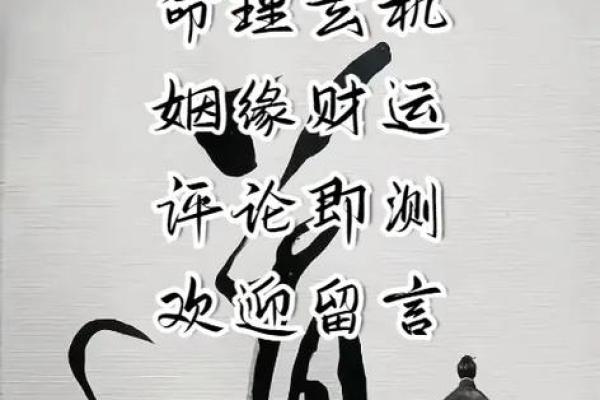 命理玄机
姻缘财运
评论即测
欢迎留言